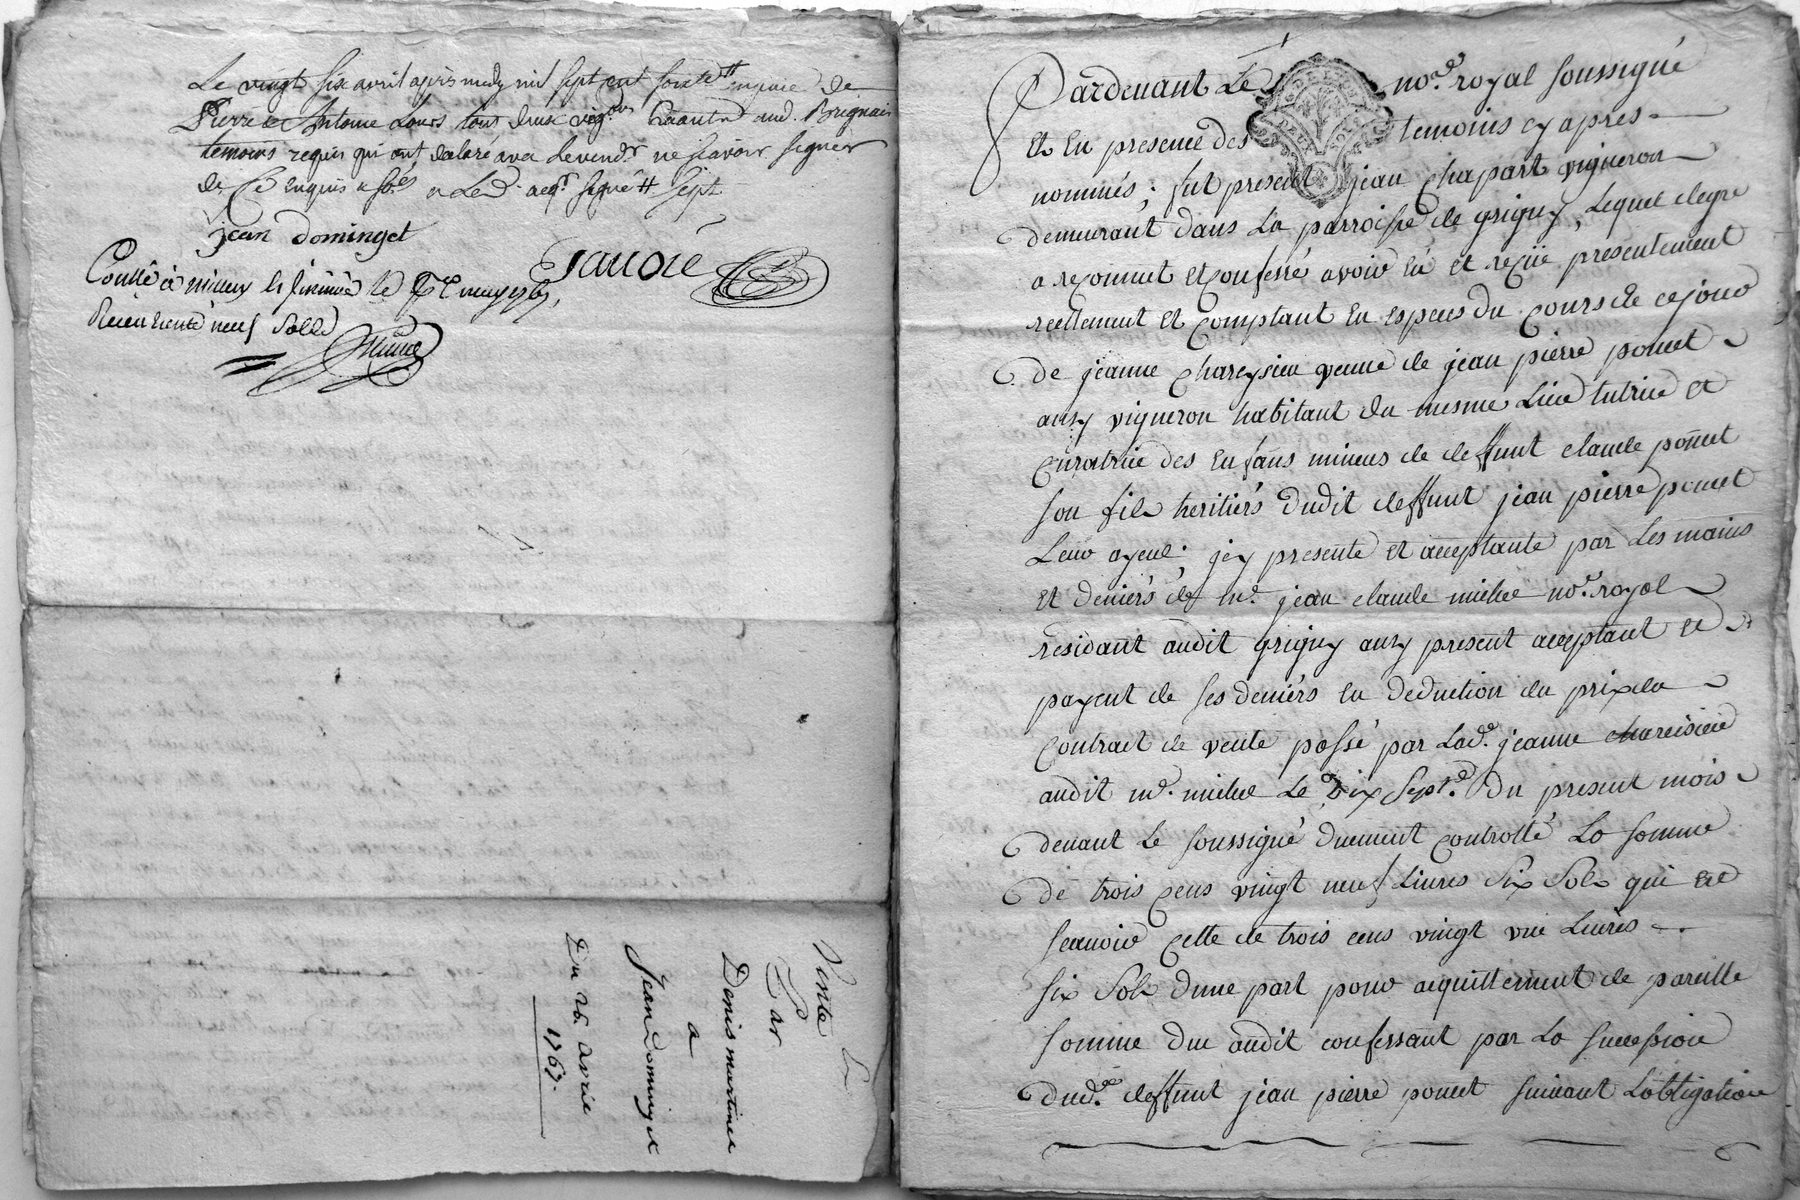 Le vingt six avril après midy mil sept cent soixante sept en presence de
Pierre & Antoine Lours tous deux vig.rons Brignais
temoins requis qui ont declaré avec le vend.r ne sçavoir signer
de ce enquis & led. acq.r signé sept
jean dominget
Janoré
Contlé à le
Receu trente neuf sols
Vente
Par
Denis martinet
a
Jean Dominget
Du 26. avril
1767.
Pardevant Le no.re royal soussigné
DEUX SOLS
Et En presence des temoins cy apres
nommés; fut present jean chapart vigneron
demeurant dans La parroisse de grigny, Lequel degre
a reconnut et confessé avoir Eu et reçüe presentement
reellement et comptant En especes du cours de ce jour
de jeanne chareysieu veuve de jean pierre poncet
ausy vigneron habitant du mesme Lieu tutrice et
curatrice des Enfans mineurs de deffunt claude poncet
son fils heritiers dudit deffunt jean pierre poncet
Leur ayeul; jcy presente et acceptante par Les mains
et deniers de m.e jean claude no.re royal
residant audit grigny ausy present acceptant et
payent de ses deniers En deduction du prix du
contract de vente passé par Lad.e jeanne chareisieu
audit m.e Le dix sept.e du present mois
devant Le soussigné duement controllé La somme
de trois cens vingt neuf Livres six sols qui est
scauoir celle de trois cens vingt vne Livres
six sols dune part pour acquittement de pareille
somme due audit confessant par La succession
dud.t deffunt jean pierre poncet suivant Lobligation